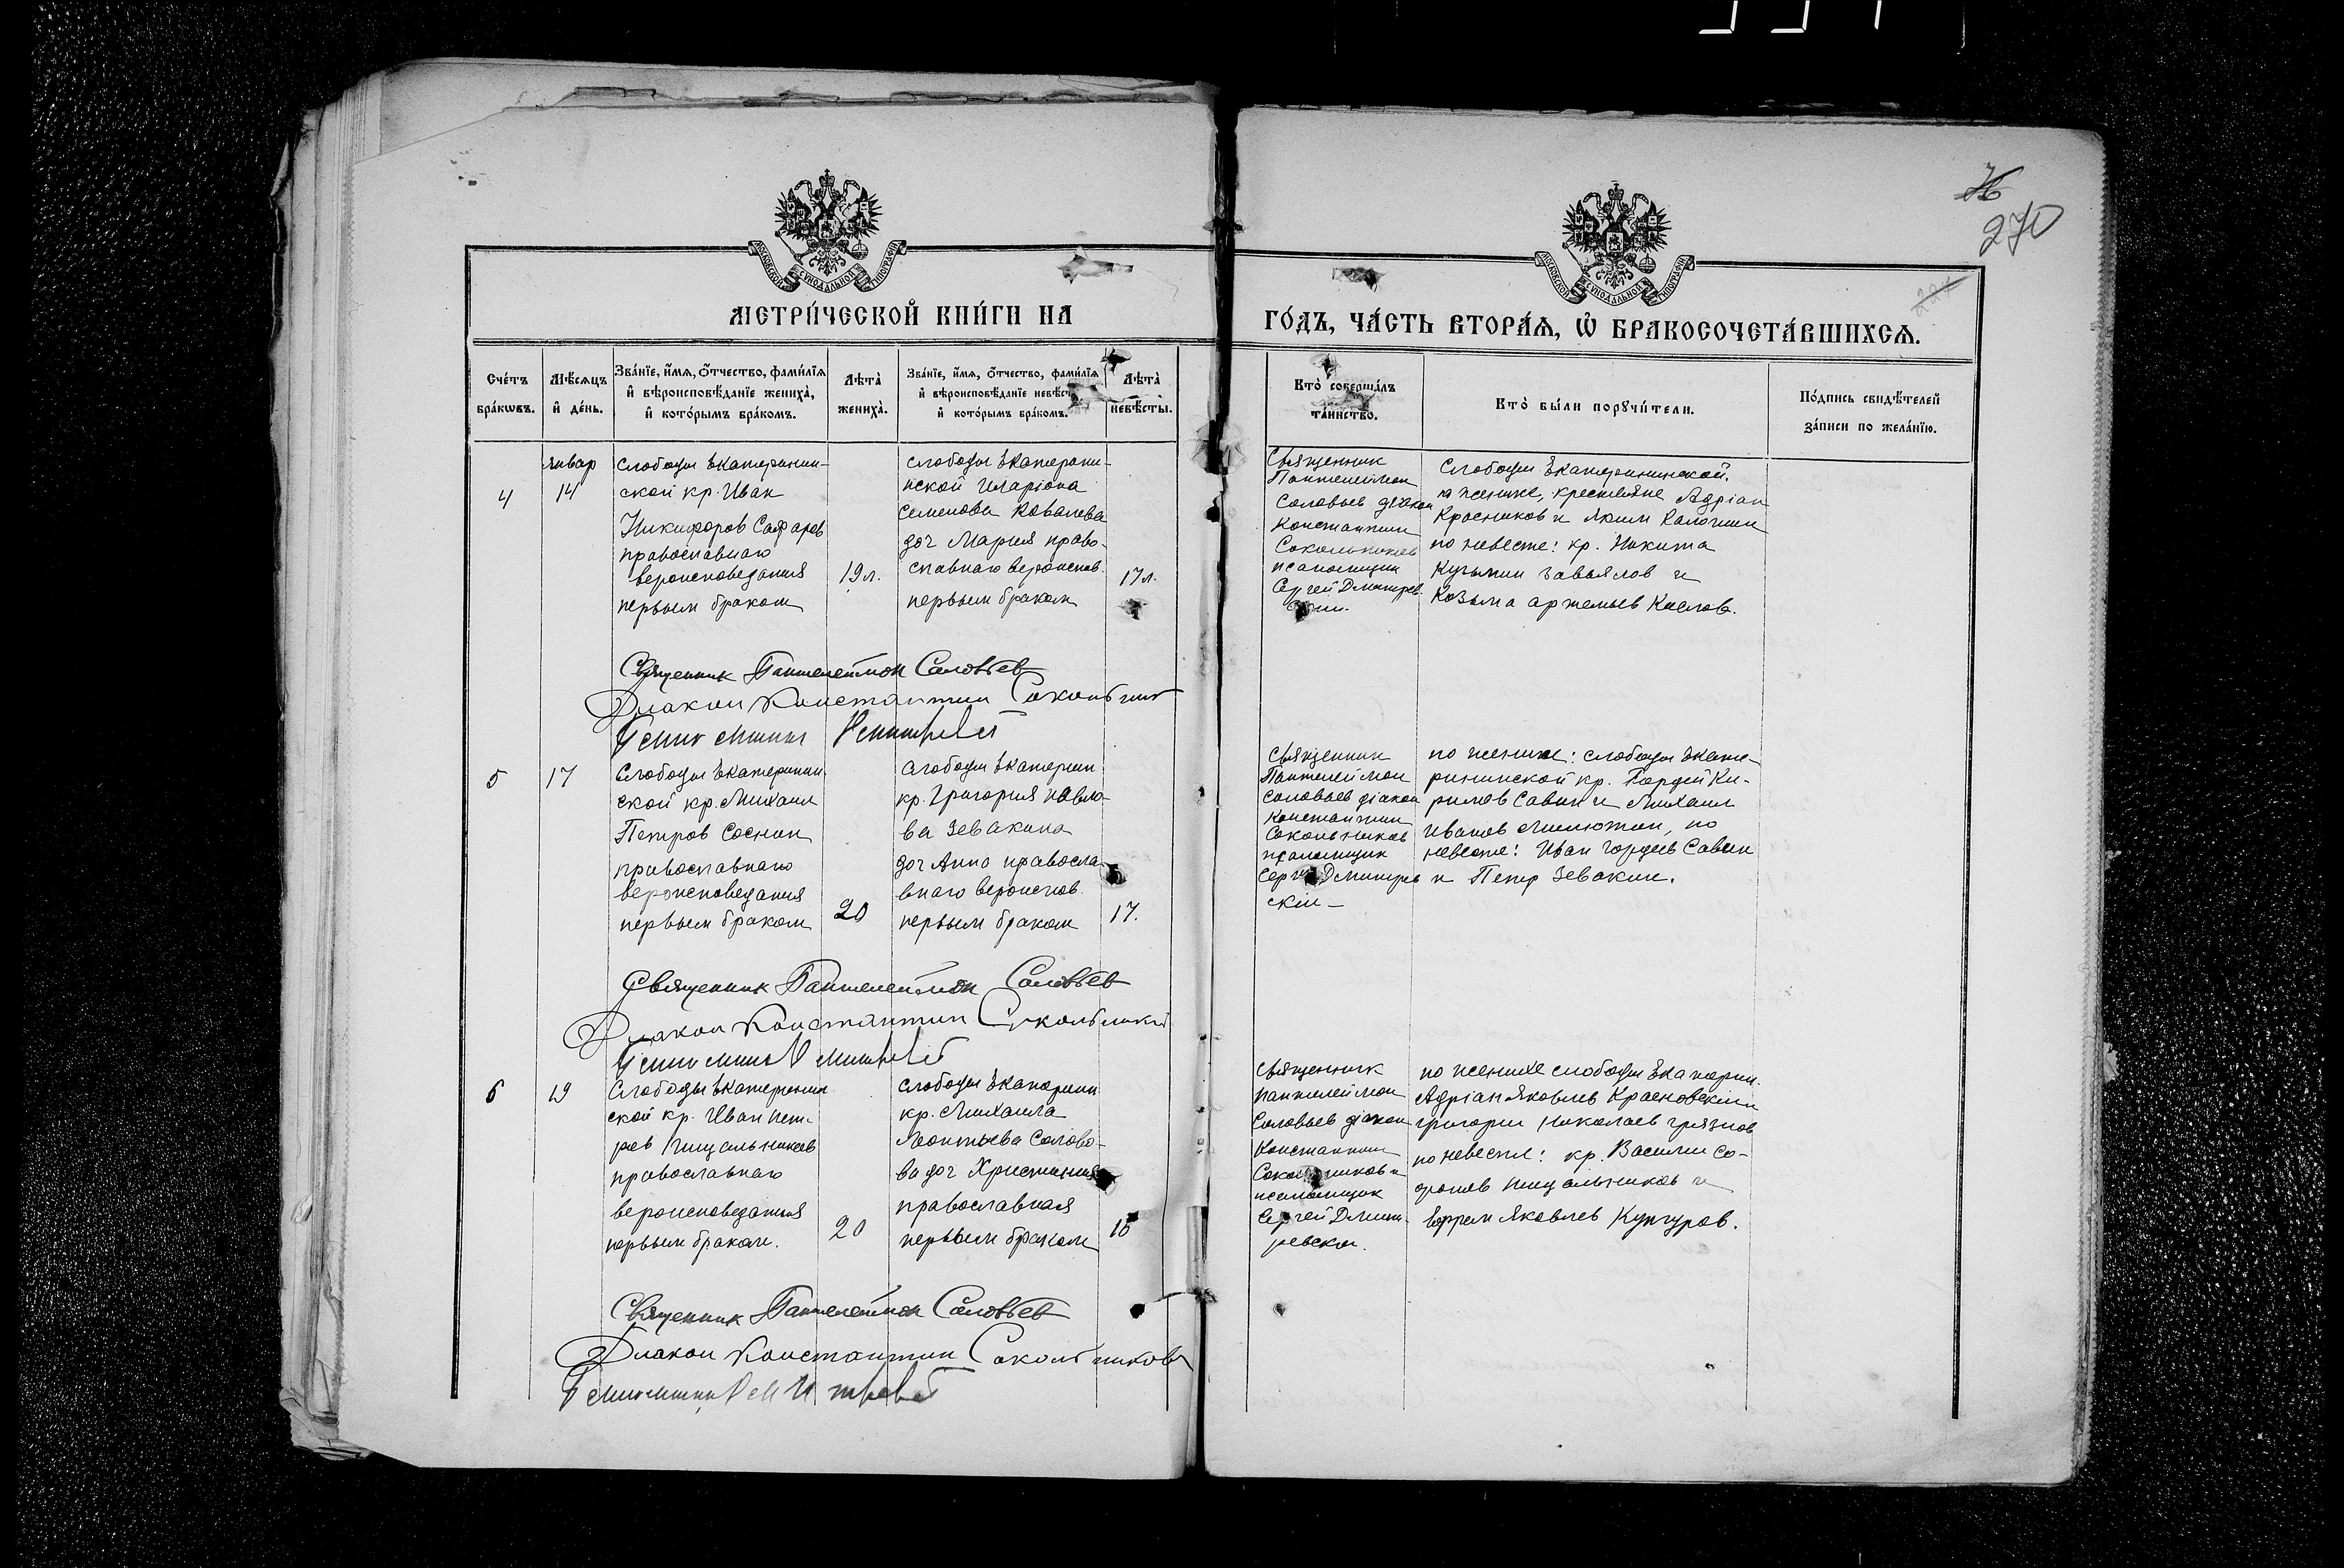 270
МОСКОВСКОЙ СѴНОДАЛЬНОЙ ТИПОГРАФІИ
МОСКОВСКОЙ СѴНОДАЛЬНОЙ ТИПОГРАФІИ
МЕТРИ́ЧЕСКОЙ КНИ́ГИ НА
ГО́ДЪ, ЧА́СТЬ ВТОРА́Ѧ, Ѡ БРАКОСОЧЕТА́ВШИХСѦ.
Сче́тъ бра́кѡвъ.
Мѣ́сѧцъ и҆ де́нь.
Зва́нїе, и҆́мѧ, ѻ҆́тчество, фами́лїѧ и҆ вѣроисповѣ́данїе жениха̀, и҆ кото́рымъ бра́комъ.
Лѣта̀ жениха̀.
Зва́нїе, и҆́мѧ, ѻ҆́тчество, фами́лїѧ и҆ вѣроисповѣ́данїе невѣ́сты, и҆ кото́рымъ бра́комъ.
Лѣта̀ невѣ́сты.
Кто̀ соверша́лъ та́инство.
Кто̀ бы́ли порꙋчи́тели.
По́дпись свидѣ́телей за́писи по жела́нїю.
4
январ
14
слободы Екатеринин-
ской кр. Иван
Никифоров Сафаров
православнаго
вероисповедания
первым браком
19 л.
слободы Екатерини-
нской Иларіона
Семенова Ковалева
доч Мария право-
славнаго вероиспов.
первым браком
17 л.
Священник
Пантелеймон
Соловьев діакон
Константин
Сокольников
псаломщик
Сергей Дмитрев
Слободы Екатерининской.
по женихе, крестьяне Адріан
Красников и Яким Калочкин
по невесте: кр. Никита
Кузьмин Завьялов и
Козьма артемьев Кислов.
Священник Пантелеймон Соловьев
Диакон Константин Сокольник
5
17
Слободы Екатеринин
ской кр. Михаил
Петров Соснин
православнаго
вероисповедания
первым браком
20
слободы Екатерин
кр. Григория павло-
ва Зевакина
доч Анна правосла
внаго вероиспов.
первым браком
17.
Священник
Пантелеймон
Соловьев діакон
Константин
Сокольников
псаломщик
Сергей Дмитрев
скіи –
по женихе: слободы Екате-
рининской кр. Гордей Ки-
рилов Савин и Михаил
Иванов Милютин, по
невесте: Иван Гордеев Савин
и Петр Зевакин.
Священник Пантелеймон Соловьев
Диакон Константин Сокольников
6
19
Слободы Екатеринин
ской кр. Иван Пет-
ров Пищальников
православнаго
вероисповедания
первым браком.
20
слободы Екатерин
кр. Михаила
Леонтьева Солово-
ва доч Христиния
православная
первым браком
Священник
пантелеймон
Соловьев діакон
Константин
Сокольников и
псаломщик
Сергей Дмит-
ревски.
по женихе слободы Екатерин.
Адріан Яковлев Красновскіи
григории николаев грязнов
по невесте: кр. Василии Со-
фонов пищальников и
Ефрем Яковлев Кунгуров.
Священник Пантелеймон Соловьев
Диакон Константин Сокольников